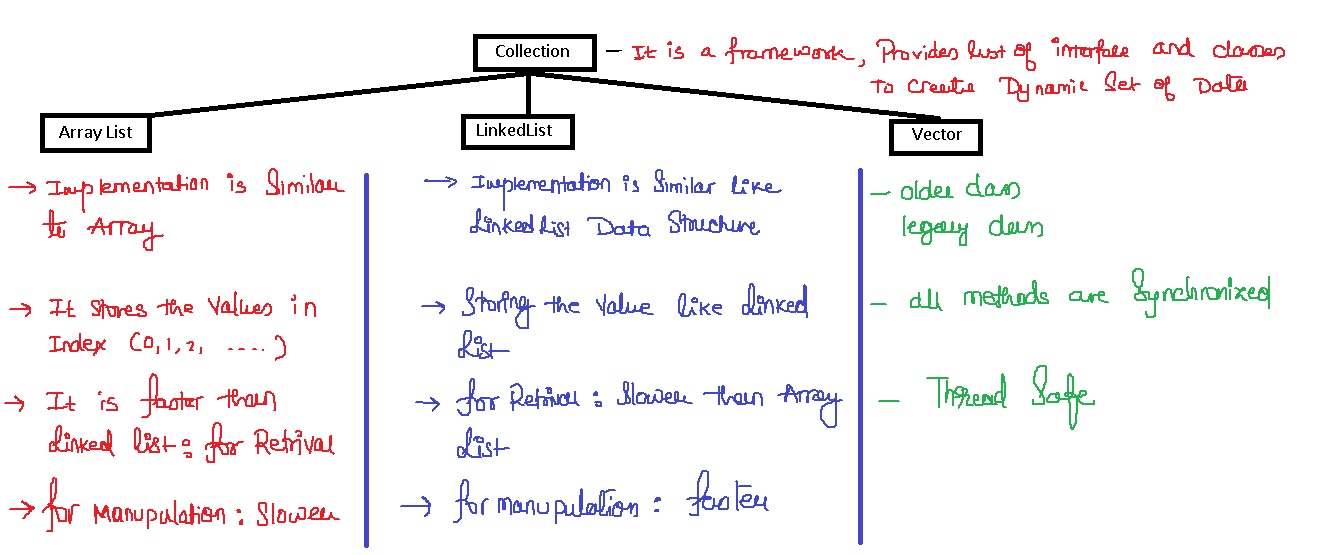 Collection
- It is a framework, Provides list of interface and classes
to create Dynamic Set of Data
Array List
LinkedList
Vector
→ Implementation is Similar
to Array
→ It stores the values in
Index (0, 1, 2, .....)
→ It is faster than
Linked list: for Retrival
→ for Manupulation: Slower
→ Implementation is Similar like
Linked list Data Structure
→ Storing the value like Linked
List
→ for Retrival: Slower than Array
List
→ for manupulation: faster
- older class
legacy class
- all methods are Synchronized
- Thread Safe